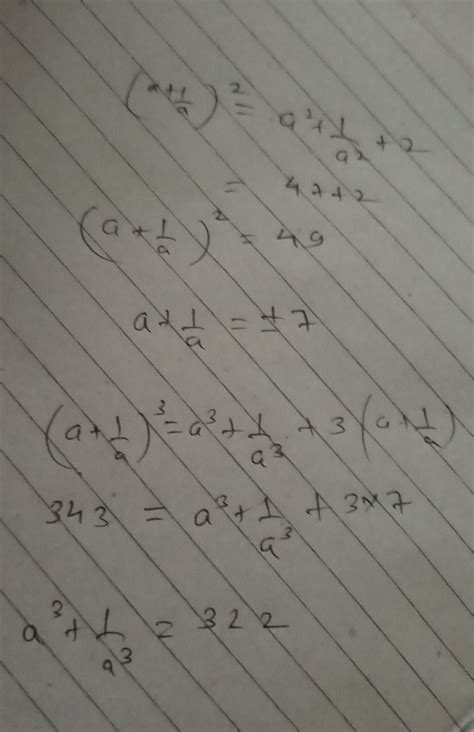 (a+1/a)² = a²+1/a²+2
= 47+2
(a+1/a)² = 49
a+1/a = ±7
(a+1/a)³=a³+1/a³+3(a+1/a)
343 = a³+1/a³+3×7
a³+1/a³=322